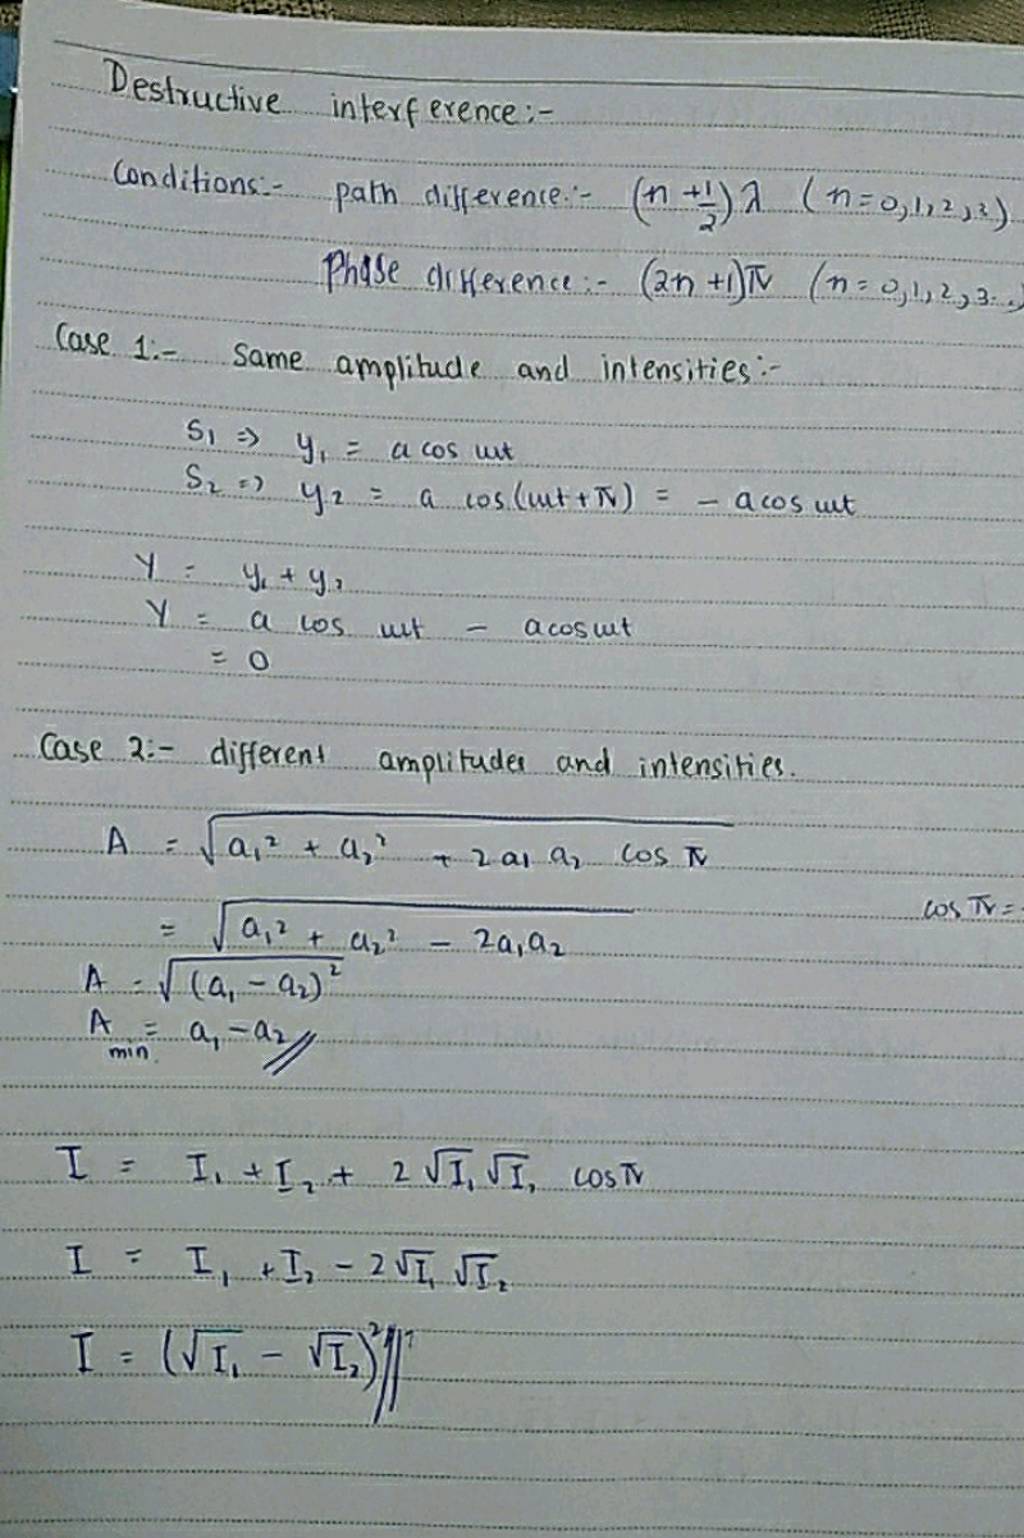 Destructive interference:-
Conditions:- path difference:- (n + 1/2) λ (n=0,1,2,3)
Phase difference:- (2n +1)π (n=0,1,2,3..)
Case 1:- Same amplitude and intensities:-
S₁ => y₁ = a cos ωt
S₂ => y₂ = a cos(ωt + π) = - a cos ωt
Y = y₁ + y₂
Y = a cos ωt - a cos ωt
= 0
Case 2:- different amplitudes and intensities.
A = √(a₁² + a₂² + 2a₁ a₂ cos π)
cos π = -
= √(a₁² + a₂² - 2a₁a₂)
A = √(a₁ - a₂)²
A min. = a₁ - a₂ //
I = I₁ + I₂ + 2 √I₁ √I₂ cos π
I = I₁ + I₂ - 2√I₁ √I₂
I = (√I₁ - √I₂)² //